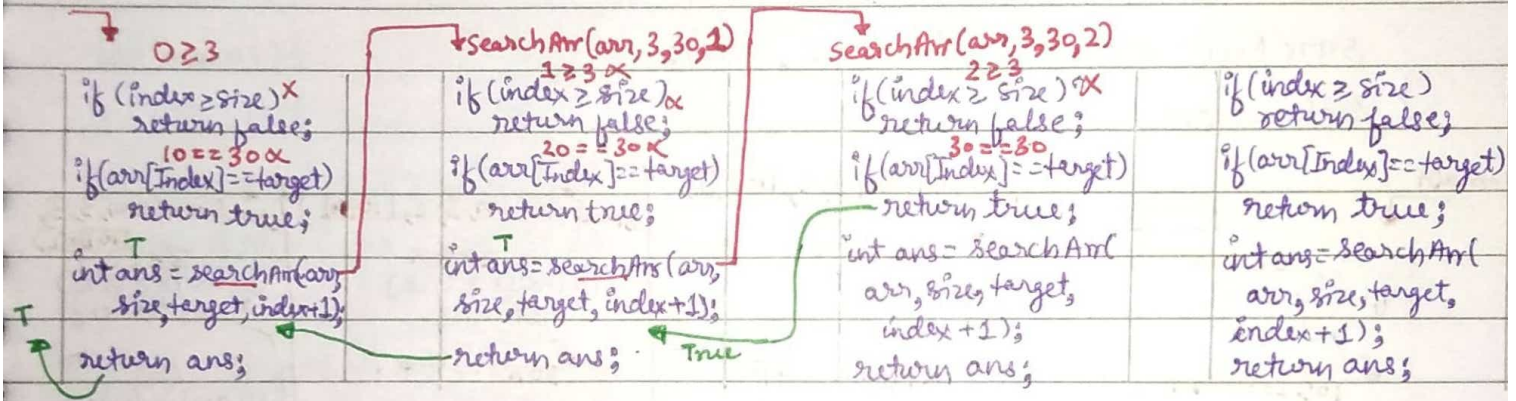 0≥3
if (index ≥ size) x
return false;
10 == 30 x
if(arr[Index]==target)
return true;
T
int ans = searchArr(arr,
size, target, index+1);
T
return ans;
searchArr(arr, 3, 30, 1)
1≥3 x
if (index ≥ size) x
return false;
20 == 30 x
if(arr[Index]==target)
return true;
T
int ans = searchArr(arr,
size, target, index+1);
return ans;
True
searchArr(arr, 3, 30, 2)
2≥3
if(index ≥ size) x
return false;
30 == 30
if(arr[Index]==target)
return true;
int ans = searchArr(
arr, size, target,
index +1);
return ans;
if(index ≥ size)
return false;
if(arr[Index]==target)
return true;
int ans = searchArr(
arr, size, target,
index+1);
return ans;